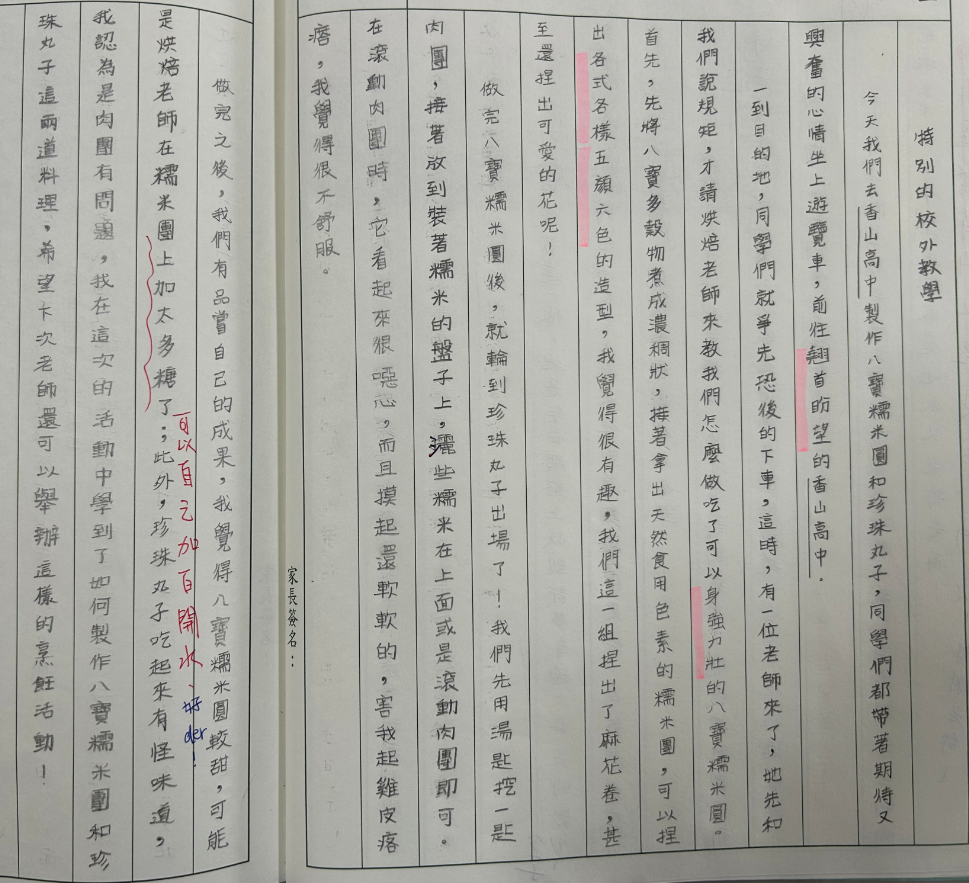 特別的校外教學
今天我們去香山高中製作八寶糯米圓和珍珠丸子，同學們都帶著期待又
興奮的心情坐上遊覽車，前往翹首盼望的香山高中．
一到目的地，同學們就爭先恐後的下車，這時，有一位老師來了，她先和
我們說規矩，才請烘焙老師來教我們怎麼做吃了可以身強力壯的八寶糯米圓。
首先，先將八寶多穀物煮成濃稠狀，接著拿出天然食用色素的糯米團，可以捏
出各式各樣五顏六色的造型，我覺得很有趣，我們這一組捏出了麻花卷，甚
至還捏出可愛的花呢！
做完八寶糯米圓後，就輪到珍珠丸子出場了！我們先用湯匙挖一匙
肉團，接著放到裝著糯米的盤子上，灑些糯米在上面或是滾動肉團即可。
在滾動肉團時，它看起來很噁心，而且摸起還軟軟的，害我起雞皮疙
瘩，我覺得很不舒服。
家長簽名：
做完之後，我們有品嘗自己的成果，我覺得八寶糯米圓較甜，可能
是烘焙老師在糯米團上加太多糖了；此外，珍珠丸子吃起來有怪味道，
可以自己加白開水、
好der！
我認為是肉團有問題，我在這次的活動中學到了如何製作八寶糯米團和珍
珠丸子這兩道料理，希望下次老師還可以舉辦這樣的烹飪活動！